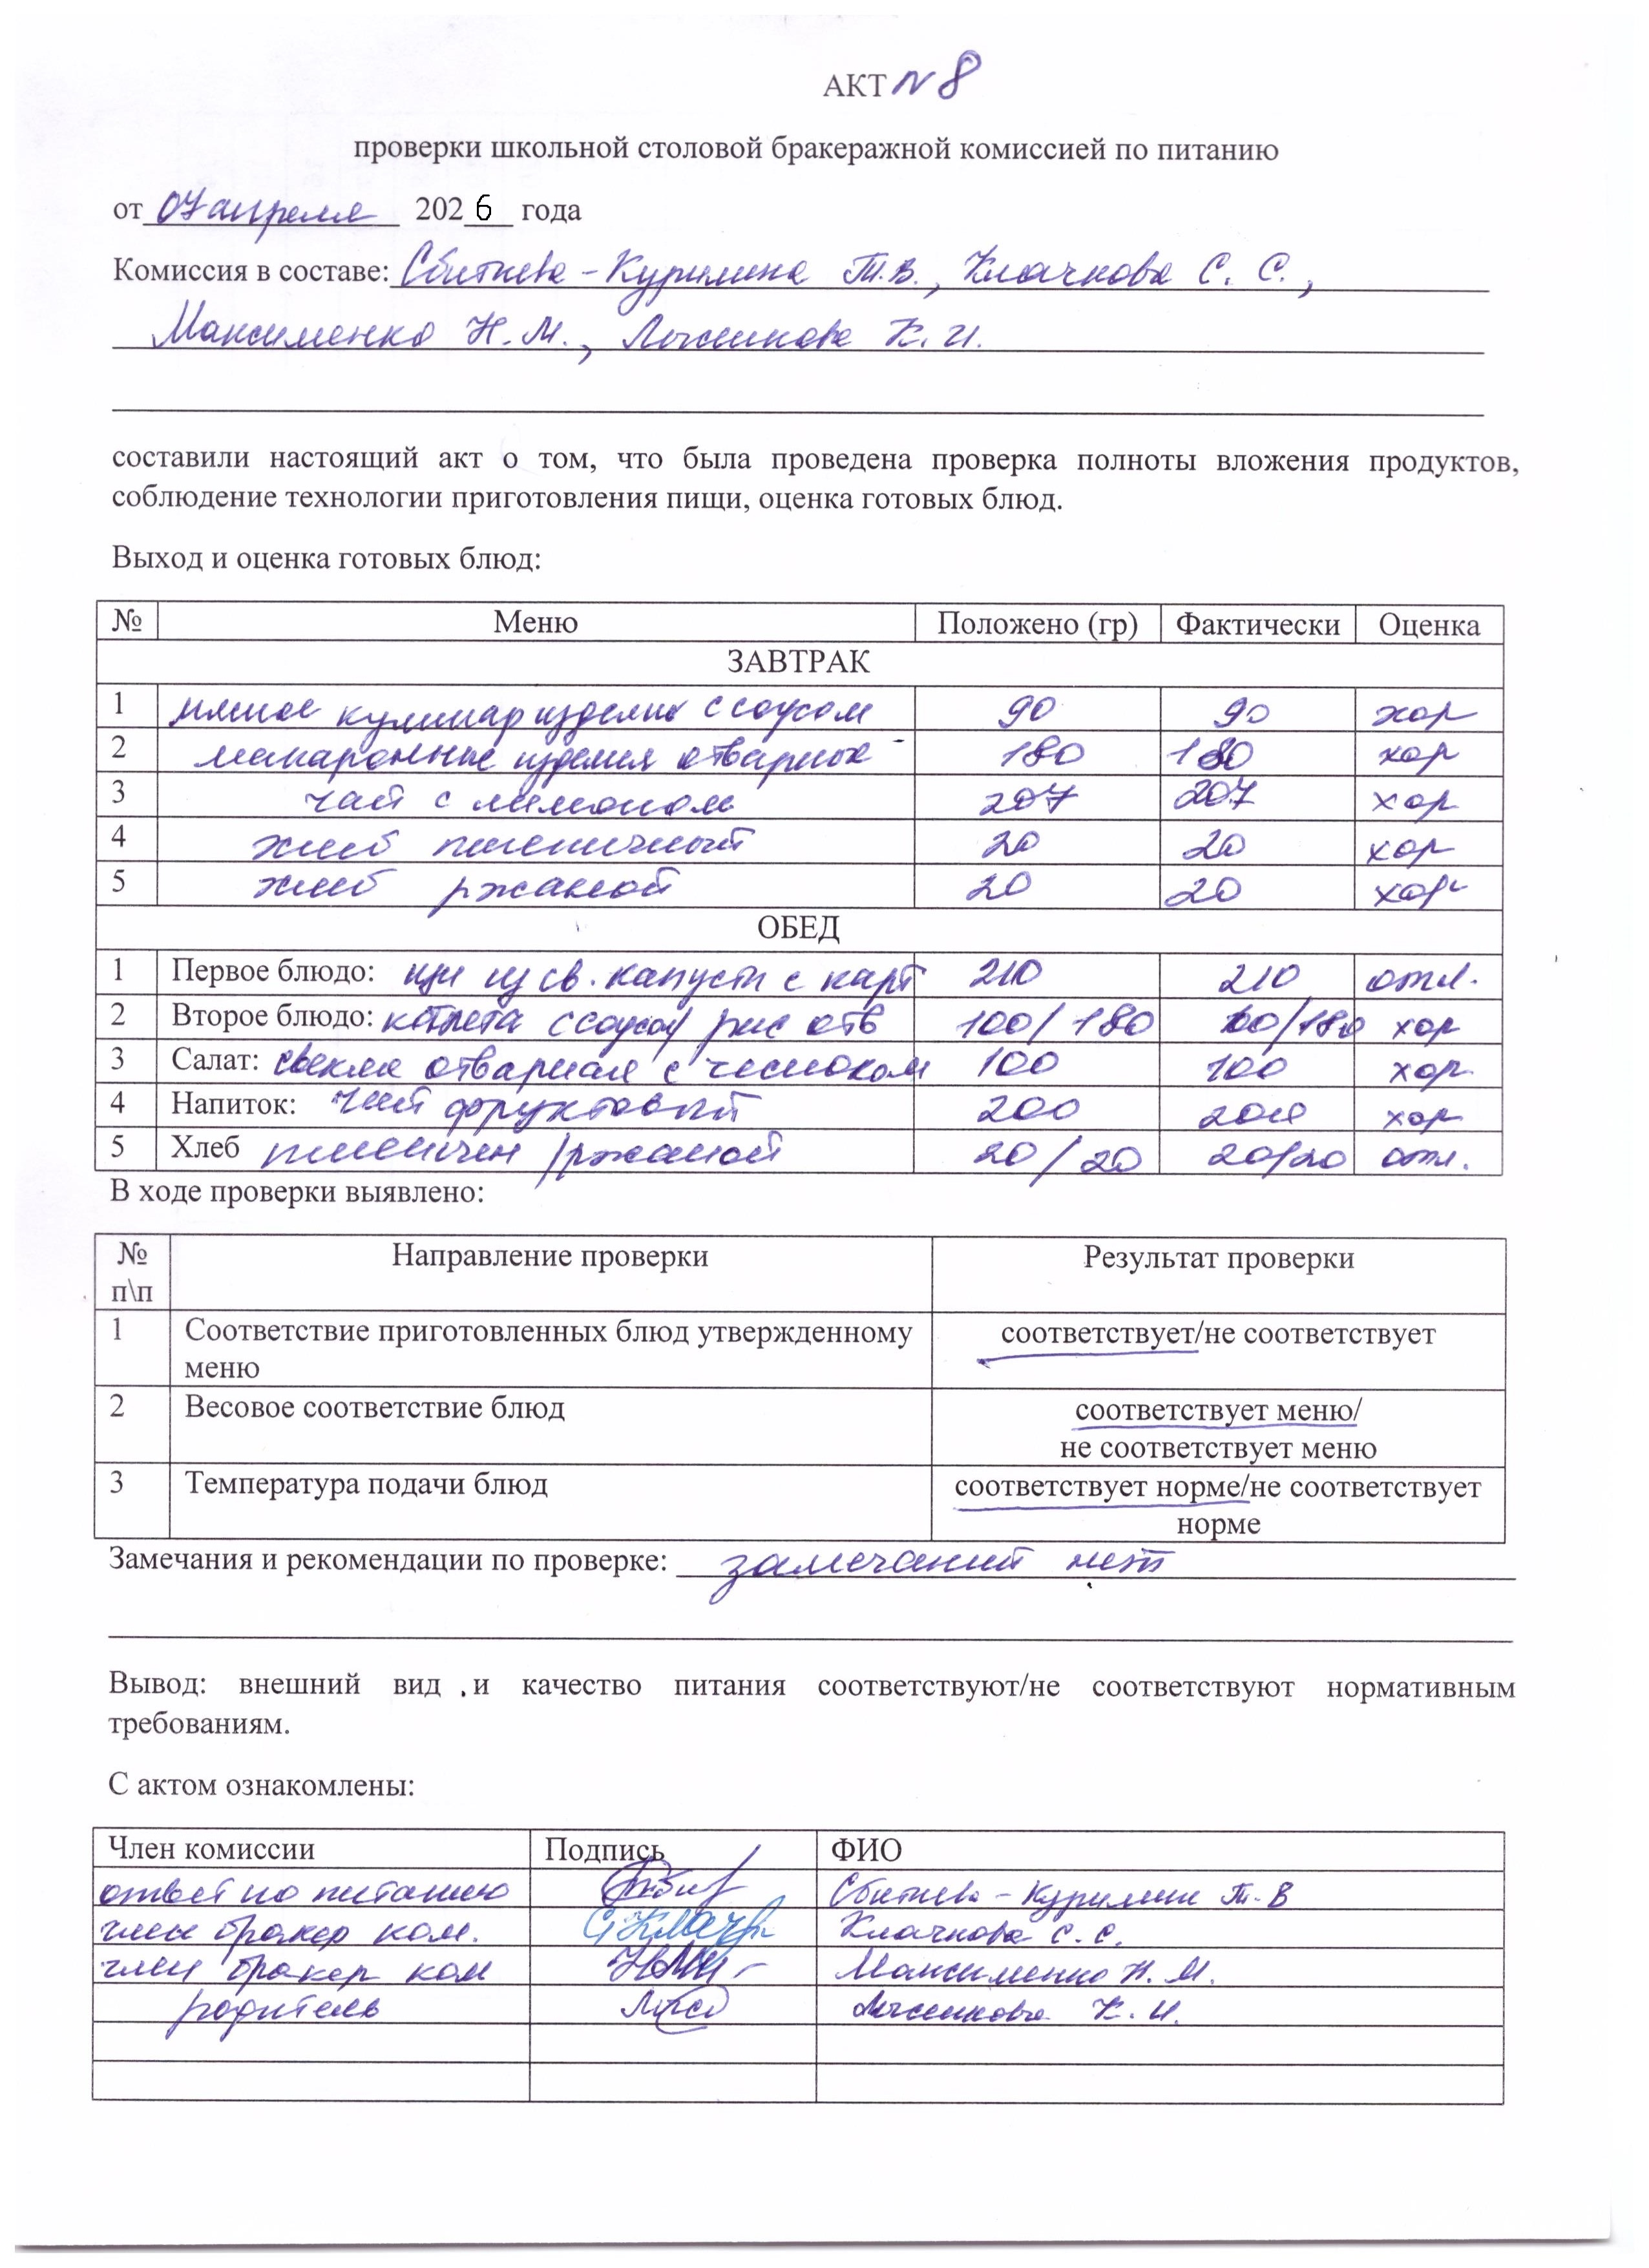 АКТ N 8
проверки школьной столовой бракеражной комиссией по питанию
от 07 апреля 2026 года
Комиссия в составе: Сбитнева - Курилина Т.В., Клачкова С. С.,
Максименко Н.М., Лысикова К.И.
составили настоящий акт о том, что была проведена проверка полноты вложения продуктов,
соблюдение технологии приготовления пищи, оценка готовых блюд.
Выход и оценка готовых блюд:
№ Меню Положено (гр) Фактически Оценка
ЗАВТРАК
1 мясное кулинар изделие с соусом 90 90 хор
2 макаронные изделия отварные 180 180 хор
3 чай с лимоном 207 207 хор
4 хлеб пшеничный 20 20 хор
5 хлеб ржаной 20 20 хор
ОБЕД
1 Первое блюдо: щи из св. капусты с карт 210 210 отл.
2 Второе блюдо: котлета с соусом/ рис отв 100/180 100/180 хор
3 Салат: свекла отварная с чесноком 100 100 хор
4 Напиток: чай фруктовый 200 200 хор
5 Хлеб пшеничн/ржаной 20/20 20/20 отл.
В ходе проверки выявлено:
№ Направление проверки Результат проверки
п\п
1 Соответствие приготовленных блюд утвержденному соответствует/не соответствует
меню
2 Весовое соответствие блюд соответствует меню/
не соответствует меню
3 Температура подачи блюд соответствует норме/не соответствует
норме
Замечания и рекомендации по проверке: замечаний нет
Вывод: внешний вид и качество питания соответствуют/не соответствуют нормативным
требованиям.
С актом ознакомлены:
Член комиссии Подпись ФИО
ответ по питанию Сбитнева - Курилина Т.В
член бракер ком. Клачкова С.С.
член бракер ком Максименко Н.М.
родитель Лысикова К.И.